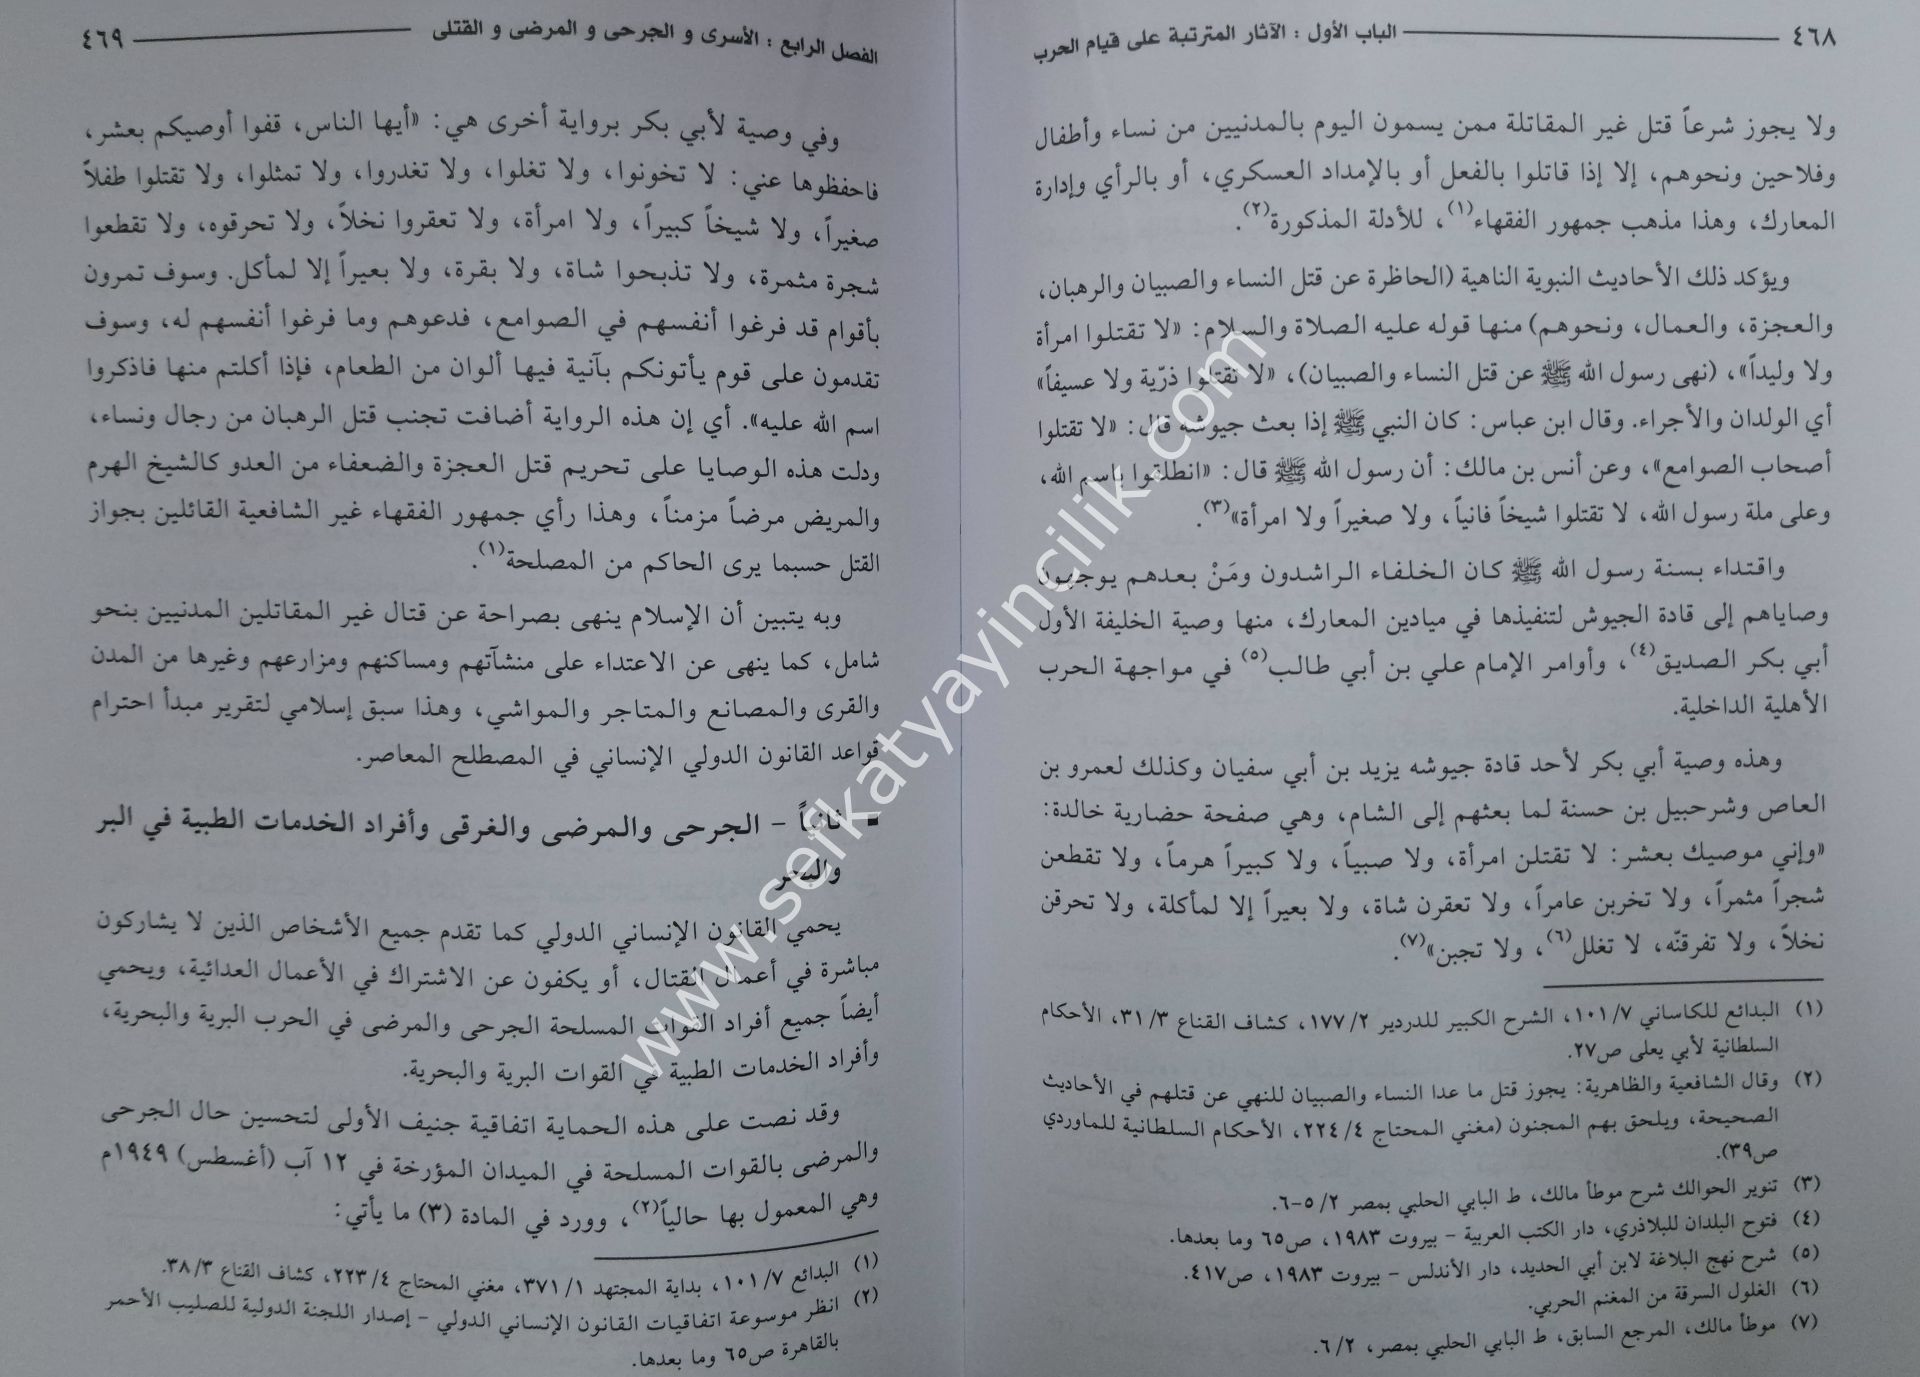 ٤٦٨ الباب الأول : الآثار المترتبة على قيام الحرب
ولا يجوز شرعاً قتل غير المقاتلة ممن يسمون اليوم بالمدنيين من نساء وأطفال
وفلاحين ونحوهم، إلا إذا قاتلوا بالفعل أو بالإمداد العسكري، أو بالرأي وإدارة
المعارك، وهذا مذهب جمهور الفقهاء(١)، للأدلة المذكورة(٢).
ويؤكد ذلك الأحاديث النبوية الناهية (الحاظرة عن قتل النساء والصبيان والرهبان،
والعجزة، والعمال، ونحوهم) منها قوله عليه الصلاة والسلام: «لا تقتلوا امرأة
ولا وليداً»، (نهى رسول الله ﷺ عن قتل النساء والصبيان)، «لا تقتلوا ذرّية ولا عسيفاً»
أي الولدان والأجراء. وقال ابن عباس: كان النبي ﷺ إذا بعث جيوشه قال: «لا تقتلوا
أصحاب الصوامع»، وعن أنس بن مالك: أن رسول الله ﷺ قال: «انطلقوا باسم الله،
وعلى ملة رسول الله، لا تقتلوا شيخاً فانياً، ولا صغيراً ولا امرأة»(٣).
واقتداء بسنة رسول الله ﷺ كان الخلفاء الراشدون ومَنْ بعدهم يوجهون
وصاياهم إلى قادة الجيوش لتنفيذها في ميادين المعارك، منها وصية الخليفة الأول
أبي بكر الصديق(٤)، وأوامر الإمام علي بن أبي طالب(٥) في مواجهة الحرب
الأهلية الداخلية.
وهذه وصية أبي بكر لأحد قادة جيوشه يزيد بن أبي سفيان وكذلك لعمرو بن
العاص وشرحبيل بن حسنة لما بعثهم إلى الشام، وهي صفحة حضارية خالدة:
«وإني موصيك بعشر: لا تقتلن امرأة، ولا صبياً، ولا كبيراً هرماً، ولا تقطعن
شجراً مثمراً، ولا تخربن عامراً، ولا تعقرن شاة، ولا بعيراً إلا لمأكلة، ولا تحرقن
نخلاً، ولا تفرقنّه، لا تغلل(٦)، ولا تجبن»(٧).
(١) البدائع للكاساني ١٠١/٧، الشرح الكبير للدردير ١٧٧/٢، كشاف القناع ٣١/٣، الأحكام
السلطانية لأبي يعلى ص٢٧.
(٢) وقال الشافعية والظاهرية: يجوز قتل ما عدا النساء والصبيان للنهي عن قتلهم في الأحاديث
الصحيحة، ويلحق بهم المجنون (مغني المحتاج ٢٢٤/٤، الأحكام السلطانية للماوردي
ص٣٩).
(٣) تنوير الحوالك شرح موطأ مالك، ط البابي الحلبي بمصر ٥/٢-٦.
(٤) فتوح البلدان للبلاذري، دار الكتب العربية - بيروت ١٩٨٣، ص٦٥ وما بعدها.
(٥) شرح نهج البلاغة لابن أبي الحديد، دار الأندلس - بيروت ١٩٨٣، ص٤١٧.
(٦) الغلول السرقة من المغنم الحربي.
(٧) موطأ مالك، المرجع السابق، ط البابي الحلبي بمصر، ٦/٢.
الفصل الرابع : الأسرى و الجرحى و المرضى و القتلى ٤٦٩
وفي وصية لأبي بكر برواية أخرى هي: «أيها الناس، قفوا أوصيكم بعشر،
فاحفظوها عني: لا تخونوا، ولا تغلوا، ولا تغدروا، ولا تمثلوا، ولا تقتلوا طفلاً
صغيراً، ولا شيخاً كبيراً، ولا امرأة، ولا تعقروا نخلاً، ولا تحرقوه، ولا تقطعوا
شجرة مثمرة، ولا تذبحوا شاة، ولا بقرة، ولا بعيراً إلا لمأكل. وسوف تمرون
بأقوام قد فرغوا أنفسهم في الصوامع، فدعوهم وما فرغوا أنفسهم له، وسوف
تقدمون على قوم يأتونكم بآنية فيها ألوان من الطعام، فإذا أكلتم منها فاذكروا
اسم الله عليه». أي إن هذه الرواية أضافت تجنب قتل الرهبان من رجال ونساء،
ودلت هذه الوصايا على تحريم قتل العجزة والضعفاء من العدو كالشيخ الهرم
والمريض مرضاً مزمناً، وهذا رأي جمهور الفقهاء غير الشافعية القائلين بجواز
القتل حسبما يرى الحاكم من المصلحة(١).
وبه يتبين أن الإسلام ينهى بصراحة عن قتال غير المقاتلين المدنيين بنحو
شامل، كما ينهى عن الاعتداء على منشآتهم ومساكنهم ومزارعهم وغيرها من المدن
والقرى والمصانع والمتاجر والمواشي، وهذا سبق إسلامي لتقرير مبدأ احترام
قواعد القانون الدولي الإنساني في المصطلح المعاصر.
▪ ثانياً - الجرحى والمرضى والغرقى وأفراد الخدمات الطبية في البر
والبحر
يحمي القانون الإنساني الدولي كما تقدم جميع الأشخاص الذين لا يشاركون
مباشرة في أعمال القتال، أو يكفون عن الاشتراك في الأعمال العدائية، ويحمي
أيضاً جميع أفراد القوات المسلحة الجرحى والمرضى في الحرب البرية والبحرية،
وأفراد الخدمات الطبية في القوات البرية والبحرية.
وقد نصت على هذه الحماية اتفاقية جنيف الأولى لتحسين حال الجرحى
والمرضى بالقوات المسلحة في الميدان المؤرخة في ١٢ آب (أغسطس) ١٩٤٩م
وهي المعمول بها حالياً(٢)، وورد في المادة (٣) ما يأتي:
(١) البدائع ١٠١/٧، بداية المجتهد ٣٧١/١، مغني المحتاج ٢٢٣/٤، كشاف القناع ٣٨/٣.
(٢) انظر موسوعة اتفاقيات القانون الإنساني الدولي - إصدار اللجنة الدولية للصليب الأحمر
بالقاهرة ص٦٥ وما بعدها.
www.sefkatyayincilik.com